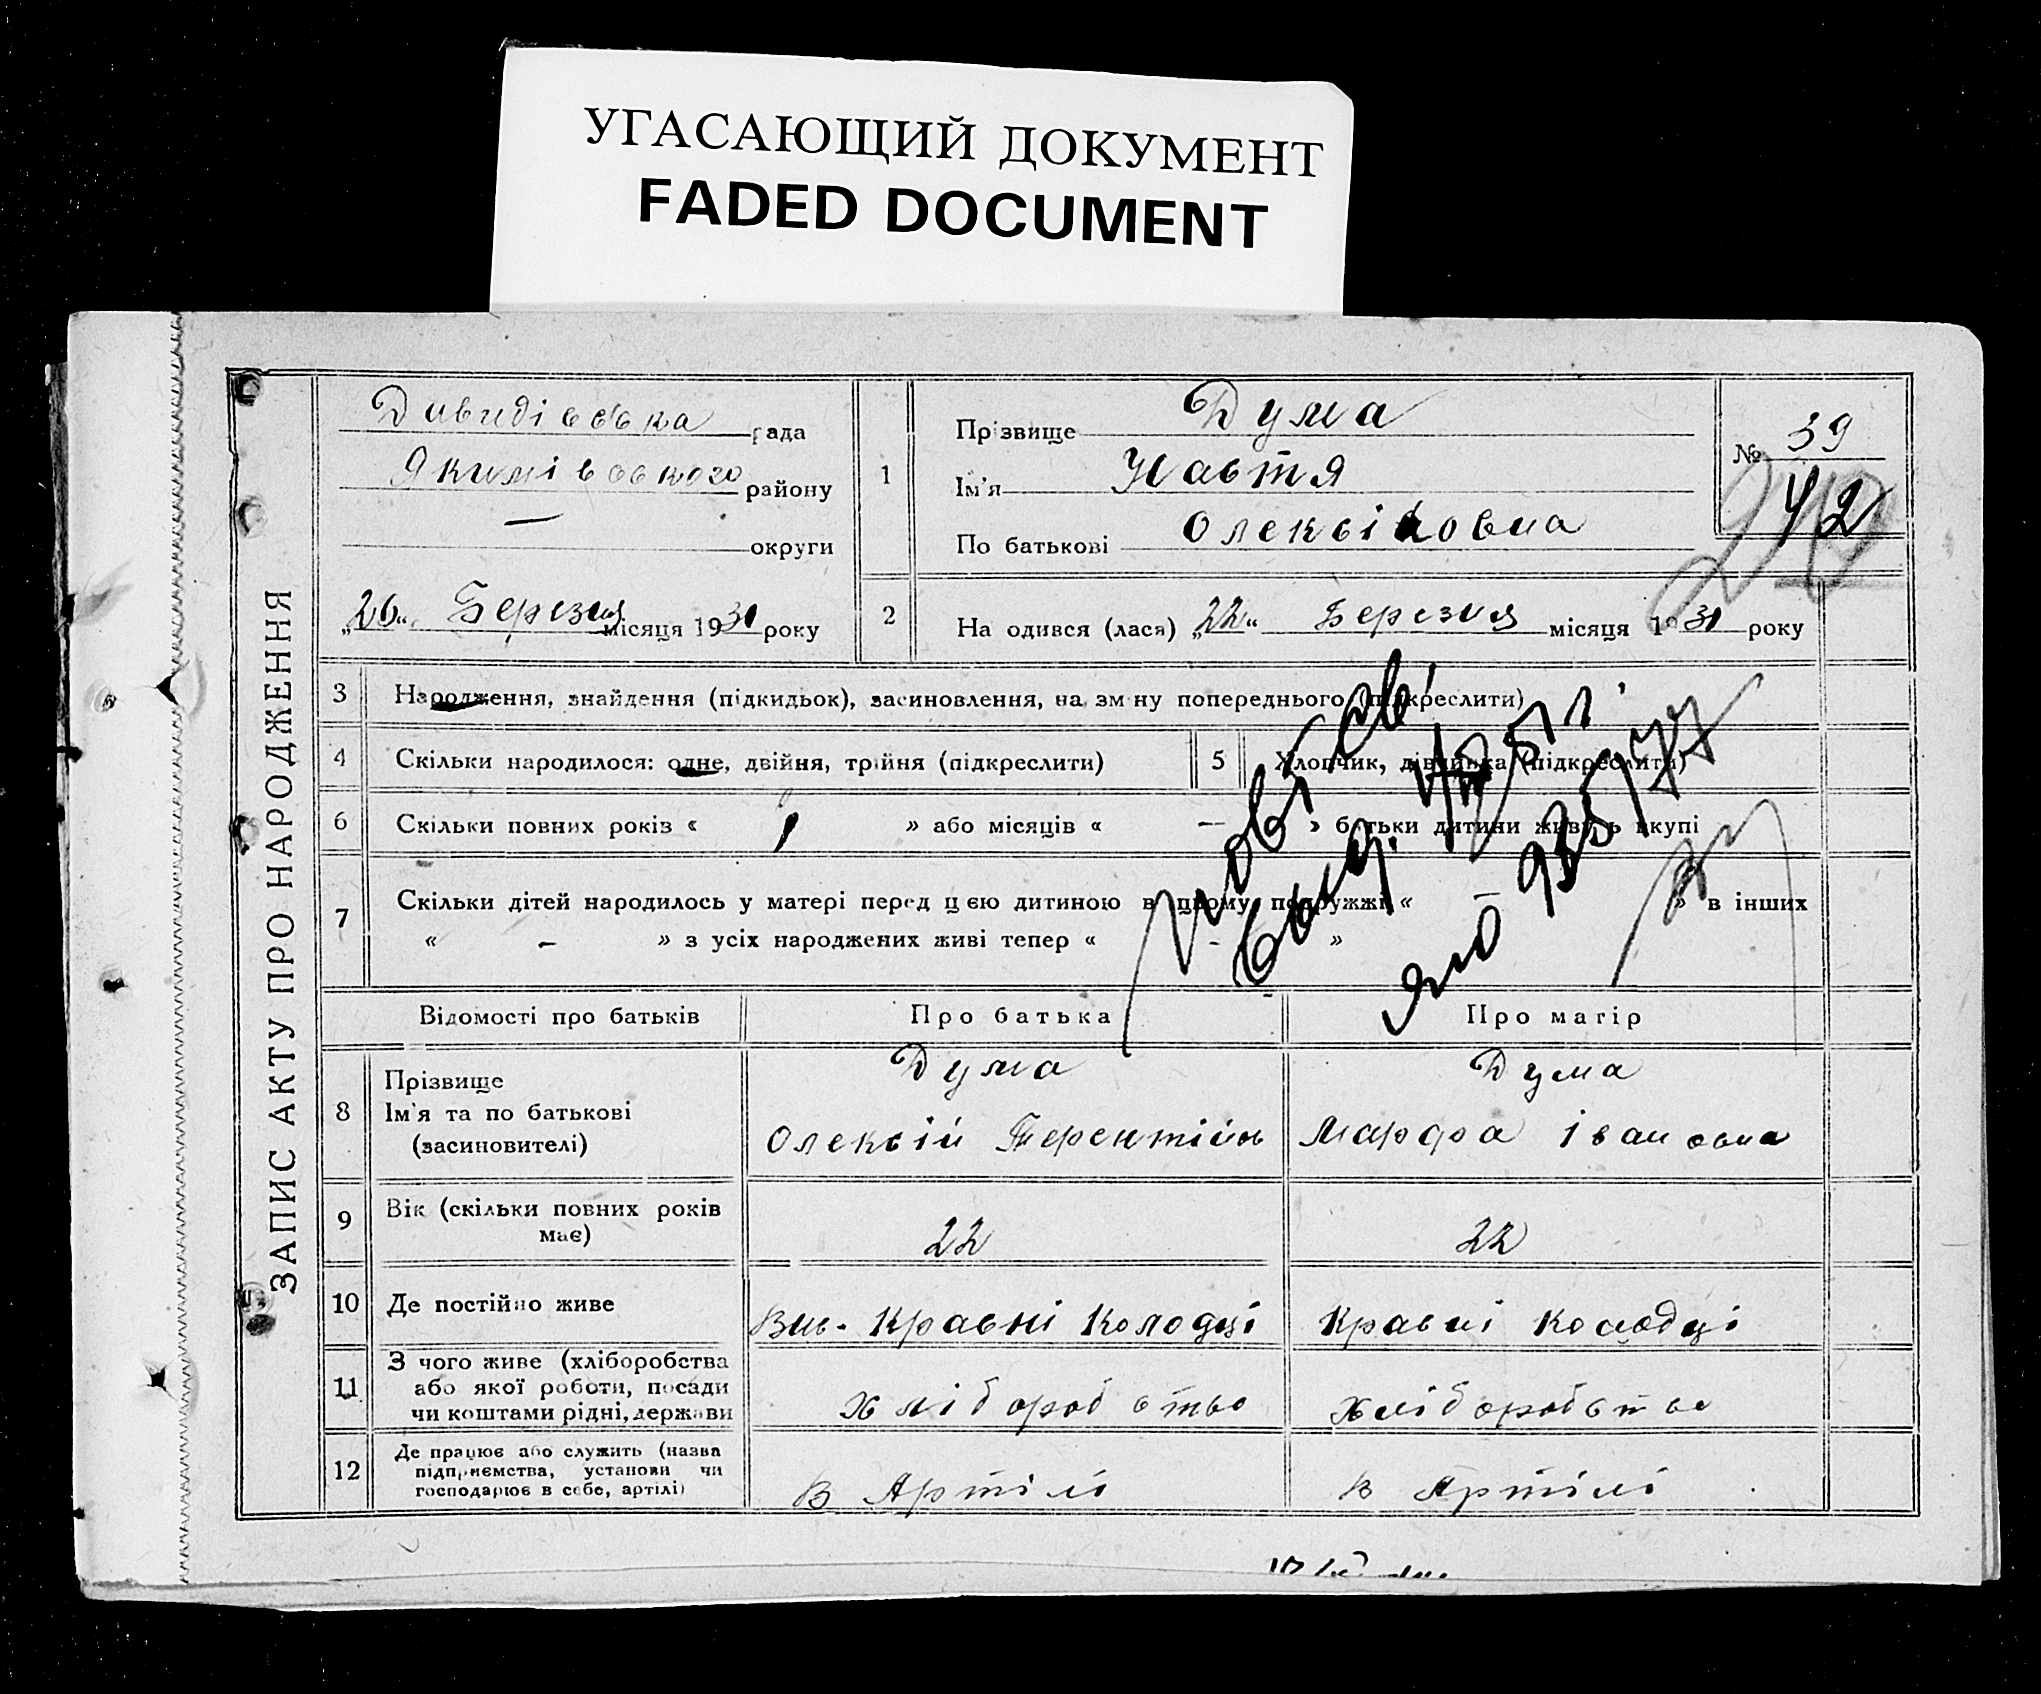 УГАСАЮЩИЙ ДОКУМЕНТ
FADED DOCUMENT
ЗАПИС АКТУ ПРО НАРОДЖЕННЯ
Давидівська рада
Якимівського району
— округи
„26“ Березня місяця 1931 року
1
Прізвище Дума
Ім'я Настя
По батькові Олексіївна
№ 39
42
2 На одився (лася) „22“ Березня місяця 1931 року
3 Народження, знайдення (підкидьок), засиновлення, на зм ну попереднього (підкреслити)
4 Скільки народилося: одне, двійня, трійня (підкреслити)
5 Хлопчик, дівчинка (підкреслити)
6 Скільки повних років « 1 » або місяців « — » батьки дитини живуть вкупі
7 Скільки дітей народилось у матері перед цією дитиною в цьому подружжі « — » в інших
« - » з усіх народжених живі тепер « - »
Відомості про батьків Про батька Про матір
8 Прізвище
Ім'я та по батькові
(засиновителі)
Дума
Олексій Терентійов
Дума
Марфа Івановна
9 Вік (скільки повних років
має)
22
22
10 Де постійно живе
Вис. Кравні Колодці
Кравні Колодці
11 З чого живе (хліборобства
або якої роботи, посади
чи коштами рідні, держави
хліборобство
хліборобство
12 Де працює або служить (назва
підприємства, установи чи
господарює в себе, артілі)
В Артілі
В Артілі